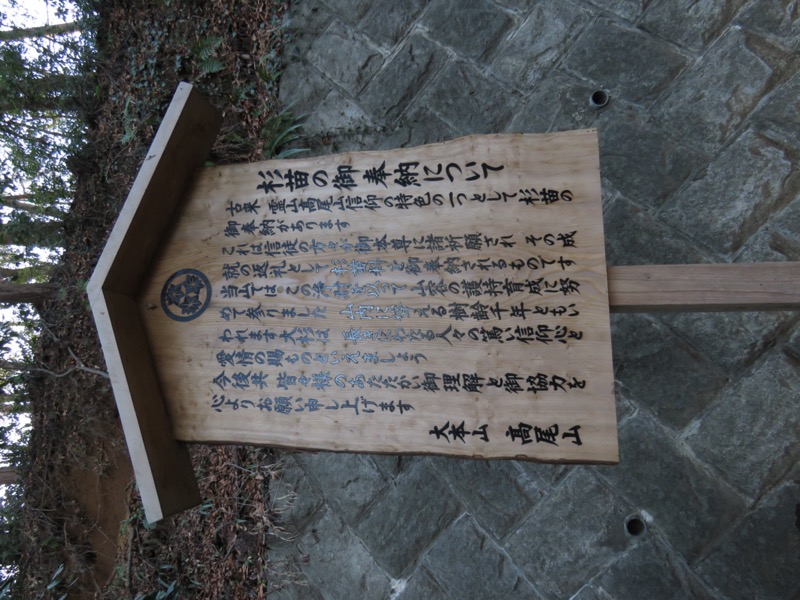 杉苗の御奉納について
古来 霊山高尾山信仰の特色の一つとして杉苗の
御奉納があります
これは信徒の方々が御本尊に諸祈願され その成
就の返礼として杉苗料を御奉納されるものです
当山ではこの浄財を以って山容の護持育成に努
めて参りました 山内に聳える樹齢千年ともい
われます大杉は 長きにわたる人々の篤い信仰心と
愛情の賜ものといえましょう
今後共 皆々様のあたたかい御理解と御協力を
心よりお願い申し上げます
大本山 髙尾山